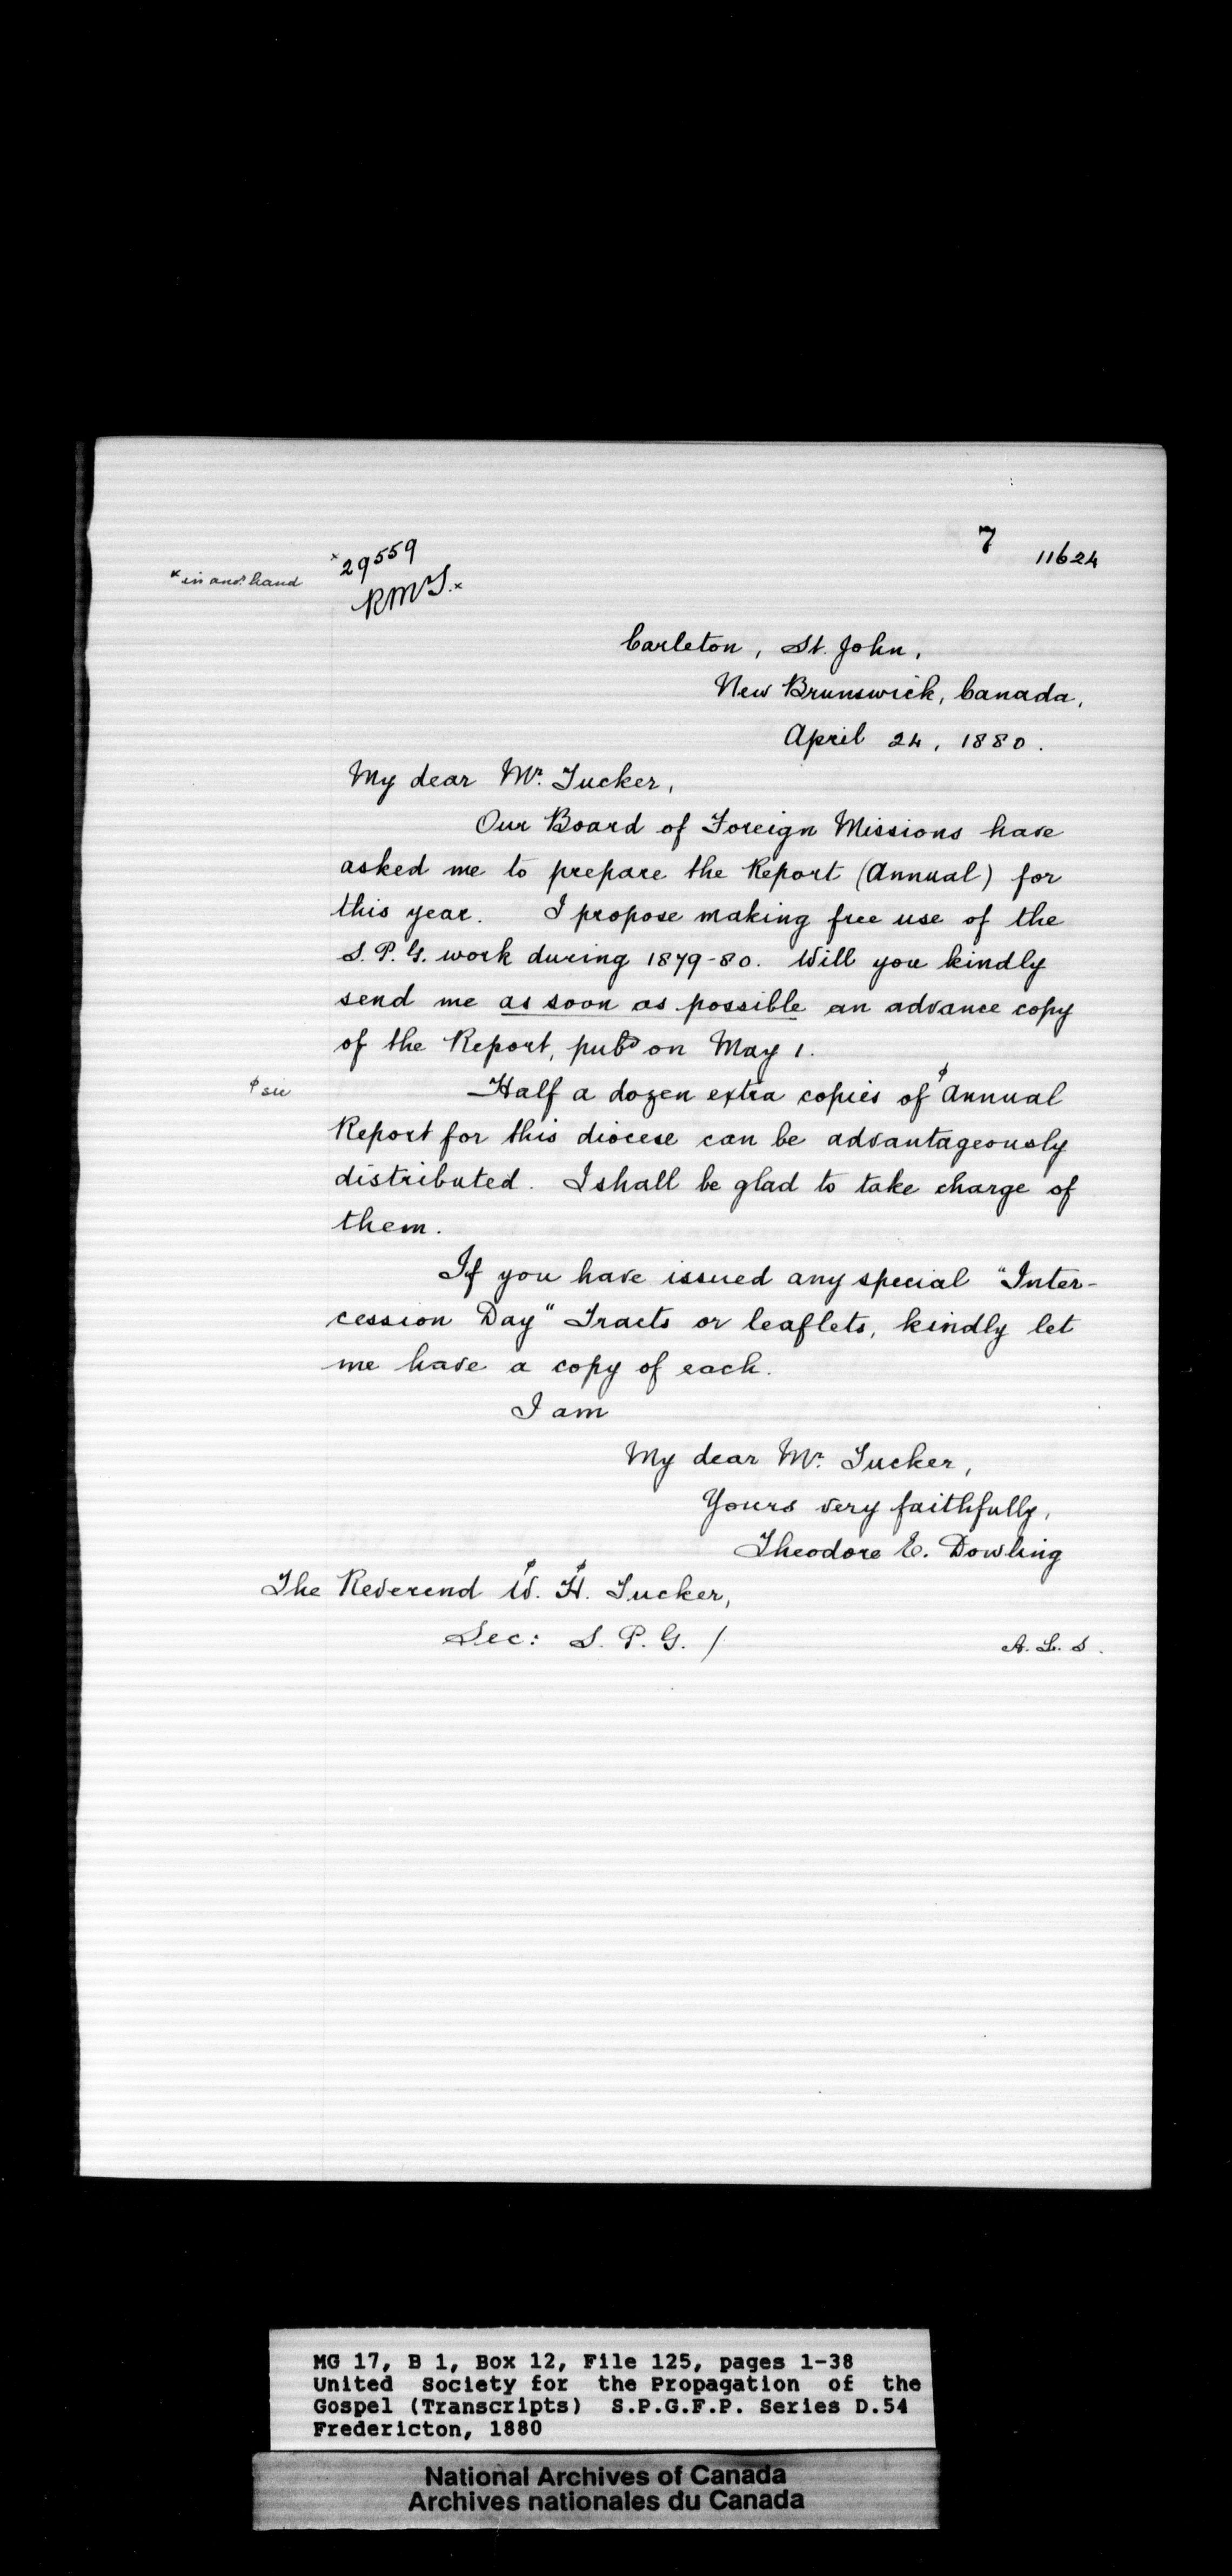 7
11624
x in anor hand
x29559
RMS.x
Carleton, St. John,
New Brunswick, Canada,
April 24, 1880.
My dear Mr. Tucker,
Our Board of Foreign Missions have
asked me to prepare the Report (Annual) for
this year. I propose making free use of the
S. P. G. work during 1879-80. Will you kindly
send me as soon as possible an advance copy
of the Report, pubd on May 1.
ꞩ sic
Half a dozen extra copies of ꞩ Annual
Report for this diocese can be advantageously
distributed. I shall be glad to take charge of
them.
If you have issued any special "Inter-
cession Day" Tracts or leaflets, kindly let
me have a copy of each.
I am
My dear Mr. Tucker,
Yours very faithfully,
Theodore E. Dowling
The Reverend W. H. Tucker,
Sec: S. P. G. /
A. L. S.
MG 17, B 1, Box 12, File 125, pages 1-38
United Society for the Propagation of the
Gospel (Transcripts) S.P.G.F.P. Series D.54
Fredericton, 1880
National Archives of Canada
Archives nationales du Canada